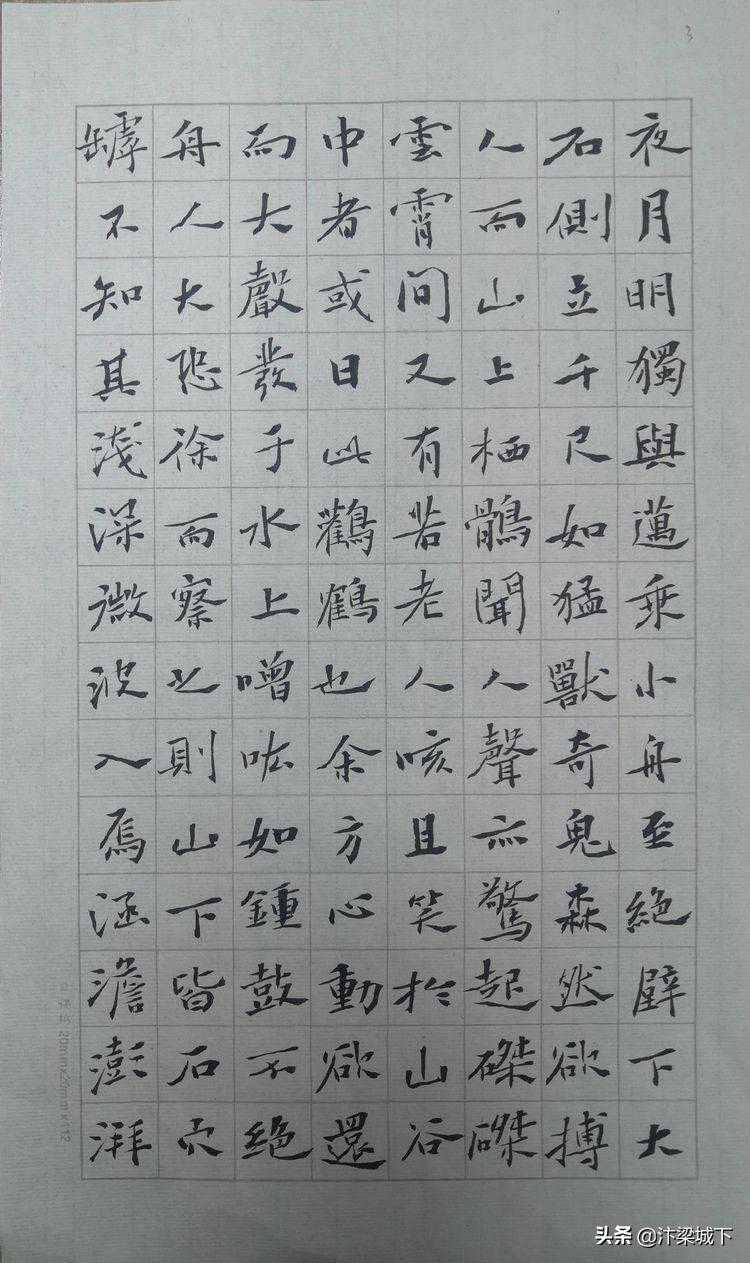 3
夜月明獨與邁乘小舟至絕壁下大
石側立千尺如猛獸奇鬼森然欲搏
人而山上栖鶻聞人聲亦驚起磔磔
雲霄間又有若老人咳且笑於山谷
中者或曰此鸛鶴也余方心動欲還
而大聲發于水上噌吰如鍾鼓不絕
舟人大恐徐而察之則山下皆石穴
罅不知其淺深微波入焉涵澹澎湃
20mm×20mm×112
头条 @汴梁城下